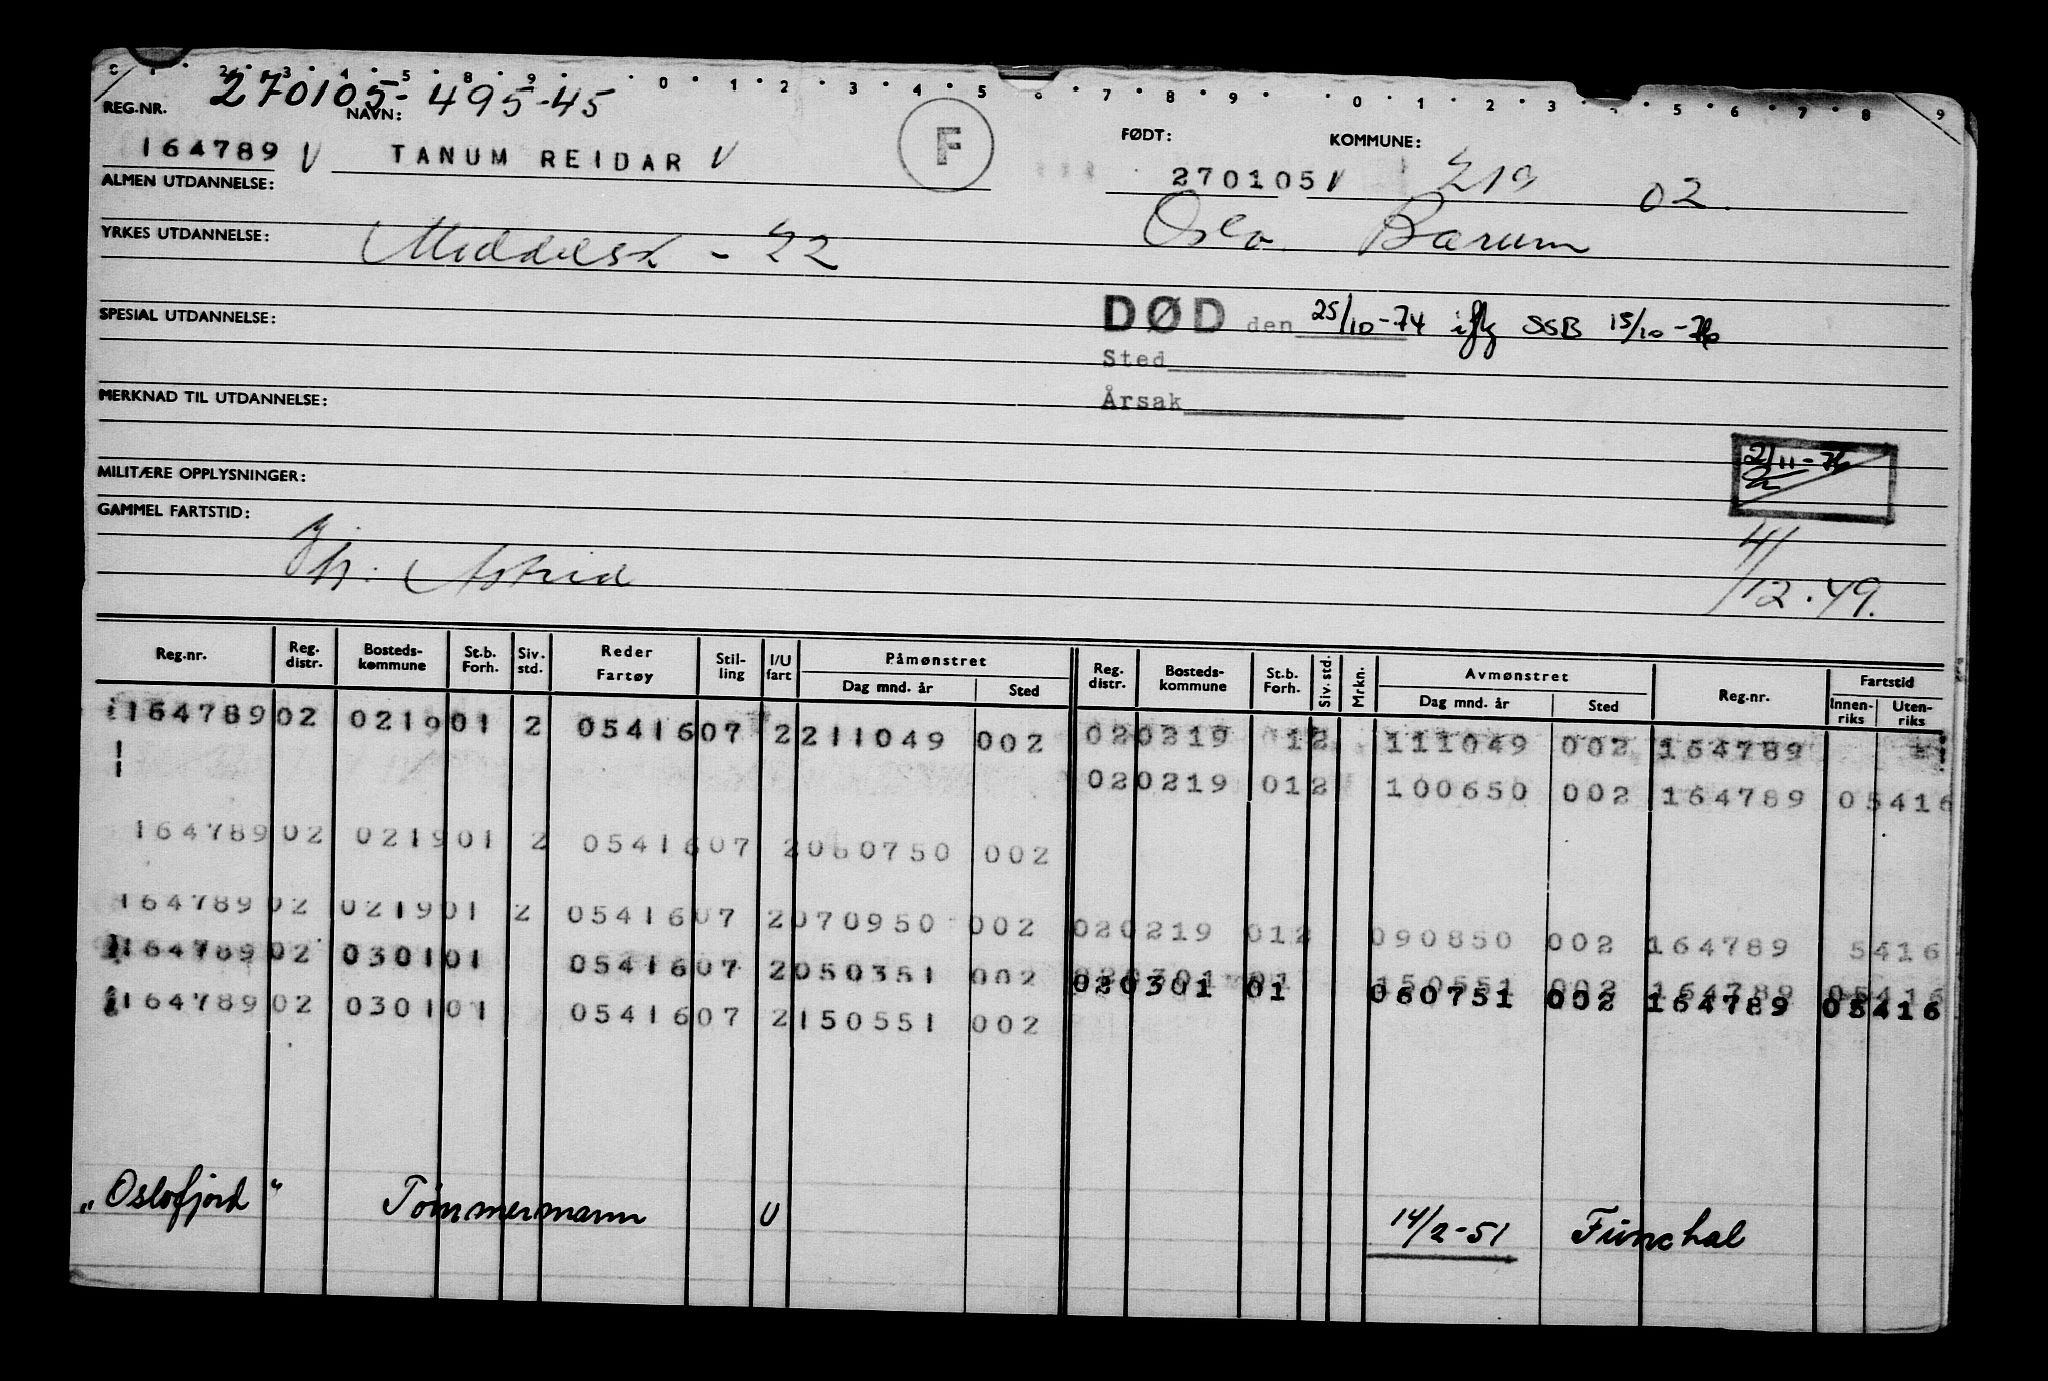 270105-495-45
REG.NR. NAVN: FØDT: KOMMUNE:
164789 V TANUM REIDAR V F 270105 V 219 02.
ALMEN UTDANNELSE:
Oslo Bærum
YRKES UTDANNELSE: Middelsk - 22
SPESIAL UTDANNELSE:
DØD den 25/10-74 iflg SSB 15/10-76
Sted
Årsak
MERKNAD TIL UTDANNELSE:
2/11-76
MILITÆRE OPPLYSNINGER:
GAMMEL FARTSTID:
Hj. Astrid 4/12.49.
Reg.nr. Reg. distr. Bosteds-kommune St.b. Forh. Siv. std. Reder Fartøy Stilling I/U fart Påmønstret Dag mnd. år Sted Reg. distr. Bosteds-kommune St.b. Forh. Siv. std. Mrkn. Avmønstret Dag mnd. år Sted Reg.nr. Fartstid Innenriks Utenriks
164789 02 0219 01 2 05416 07 2 211049 002 02 0219 01 2 111049 002 164789
02 0219 01 2 100650 002 164789 05416
164789 02 0219 01 2 05416 07 2 060750 002
164789 02 0219 01 2 05416 07 2 070950 002 02 0219 01 2 090850 002 164789 5416
164789 02 0301 01 05416 07 2 050351 002 02 0301 01 150551 002 164789 05416
02 0301 01 060751 002 164789 05416
164789 02 0301 01 05416 07 2 150551 002
„Oslofjord" Tömmermann U 14/2-51 Funchal